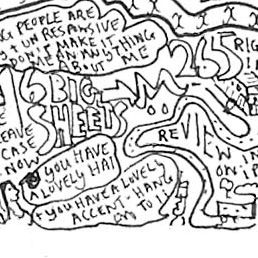 PEOPLE ARE
UN RESPONSIVE
DON'T MAKE IT
MEAN ANYTHING
ABOUT ME
265
RIG
16 BIG
SHEEUS
EAVE
CASE
NOW
YOU HAVE
A LOVELY HAI
YOU HAVE A LOVELY
ACCENT. HANG
ON TO I
REVIEW IN
ON IP